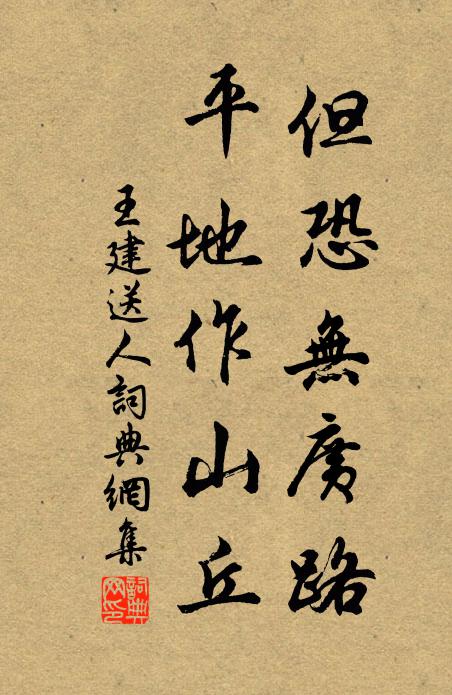 但恐無廣路
平地作山丘
王建送人詞典網集
詞典網印